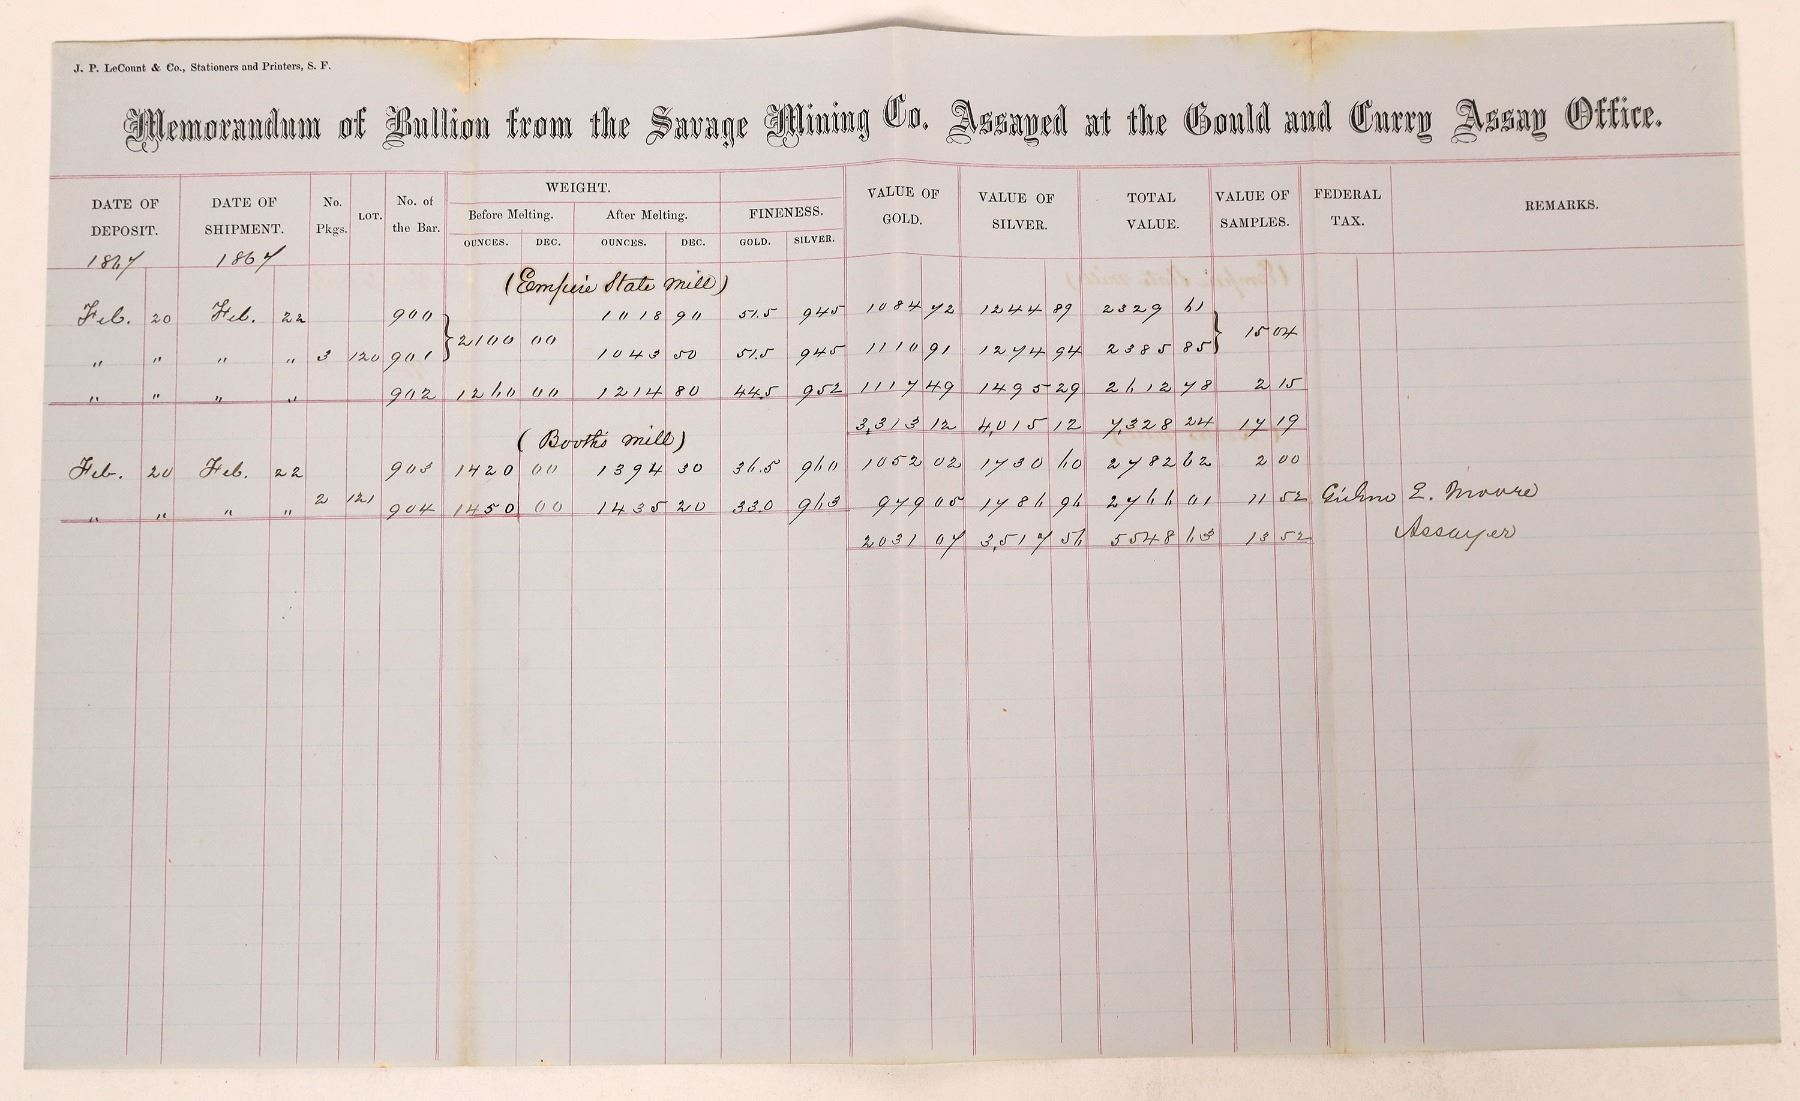 J. P. LeCount & Co., Stationers and Printers, S. F.
Memorandum of Bullion from the Savage Mining Co. Assayed at the Gould and Curry Assay Office.
DATE OF DEPOSIT. DATE OF SHIPMENT. No. Pkgs. LOT. No. of the Bar. WEIGHT. Before Melting. After Melting. FINENESS. VALUE OF GOLD. VALUE OF SILVER. TOTAL VALUE. VALUE OF SAMPLES. FEDERAL TAX. REMARKS.
OUNCES. DEC. OUNCES. DEC. GOLD. SILVER.
1867 1867
(Empire State Mill)
Feb. 20 Feb. 22 900 1018 90 51.5 945 1084 72 1244 89 2329 61
2100 00 15 04
" " " " 3 120 901 1043 50 51.5 945 1110 91 1274 94 2385 85
" " " " 902 1260 00 1214 80 44.5 952 1117 49 1495 29 2612 78 2 15
3,313 12 4,015 12 7,328 24 17 19
(Booth's Mill)
Feb. 20 Feb. 22 903 1420 00 1394 30 36.5 960 1052 02 1730 60 2782 62 2 00
" " " " 2 121 904 1450 00 1435 20 33.0 963 979 05 1786 96 2766 01 11 52 E. Moore
2031 07 3,517 56 5548 63 13 52 Assayer